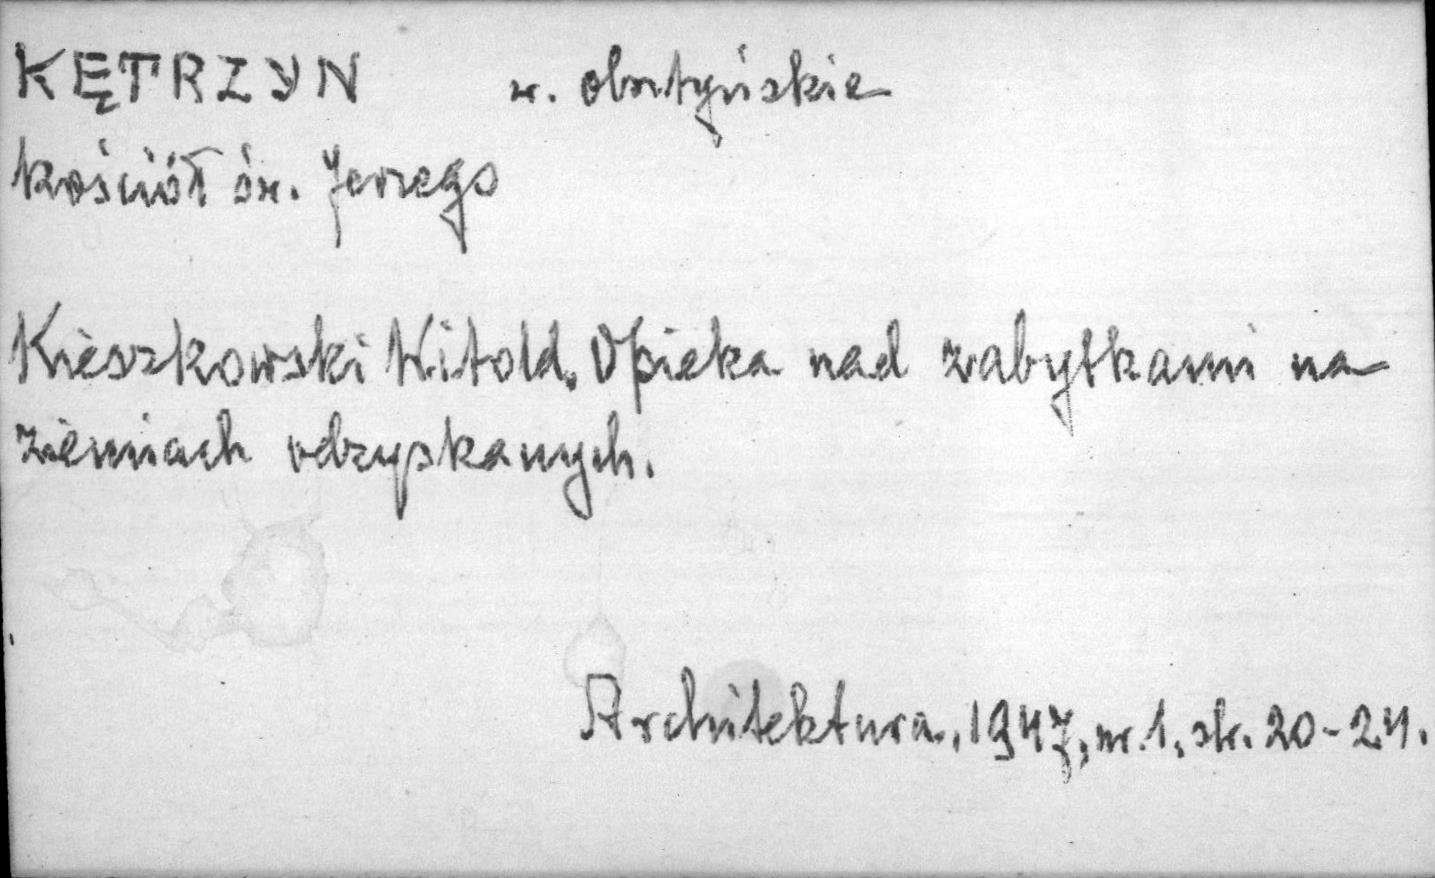 KĘTRZYN w. olsztyńskie
kościół św. Jerzego
Kieszkowski Witold, Opieka nad zabytkami na
ziemiach odzyskanych.
Architektura, 1947, nr. 1, str. 20-24.